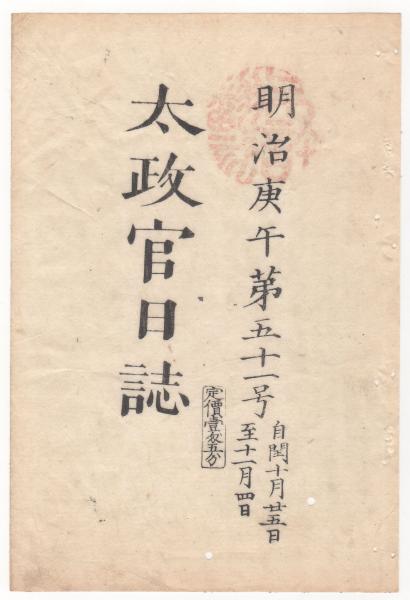 明治庚午第五十一号
自閏十月廿五日
至十一月四日
定價壹匁五分
太政官日誌